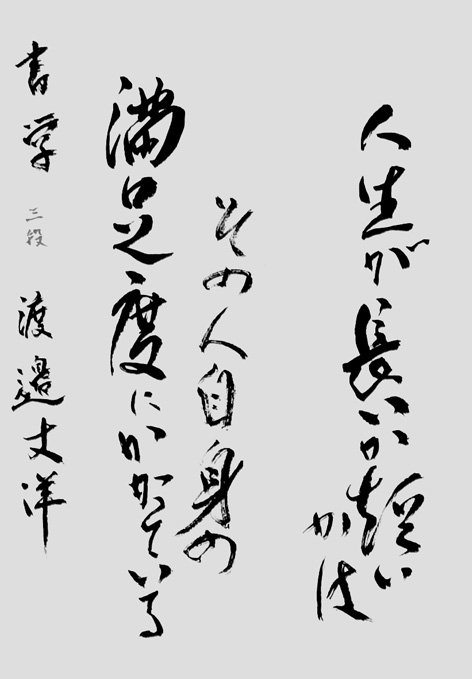 人生が長いか短い
かは
その人自身の
満足度にかかている
書学 三段 渡邉丈洋